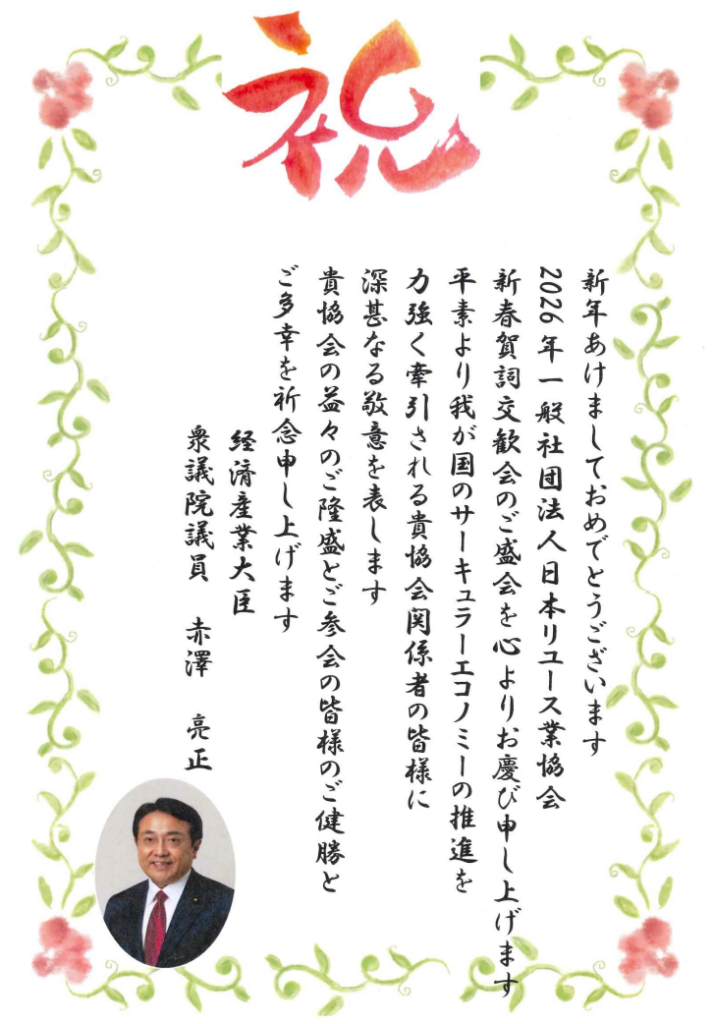 祝
新年あけましておめでとうございます
2026年一般社団法人日本リユース業協会
新春賀詞交歓会のご盛会を心よりお慶び申し上げます
平素より我が国のサーキュラーエコノミーの推進を
力強く牽引される貴協会関係者の皆様に
深甚なる敬意を表します
貴協会の益々のご隆盛とご参会の皆様のご健勝と
ご多幸を祈念申し上げます
経済産業大臣
衆議院議員 赤澤 亮正